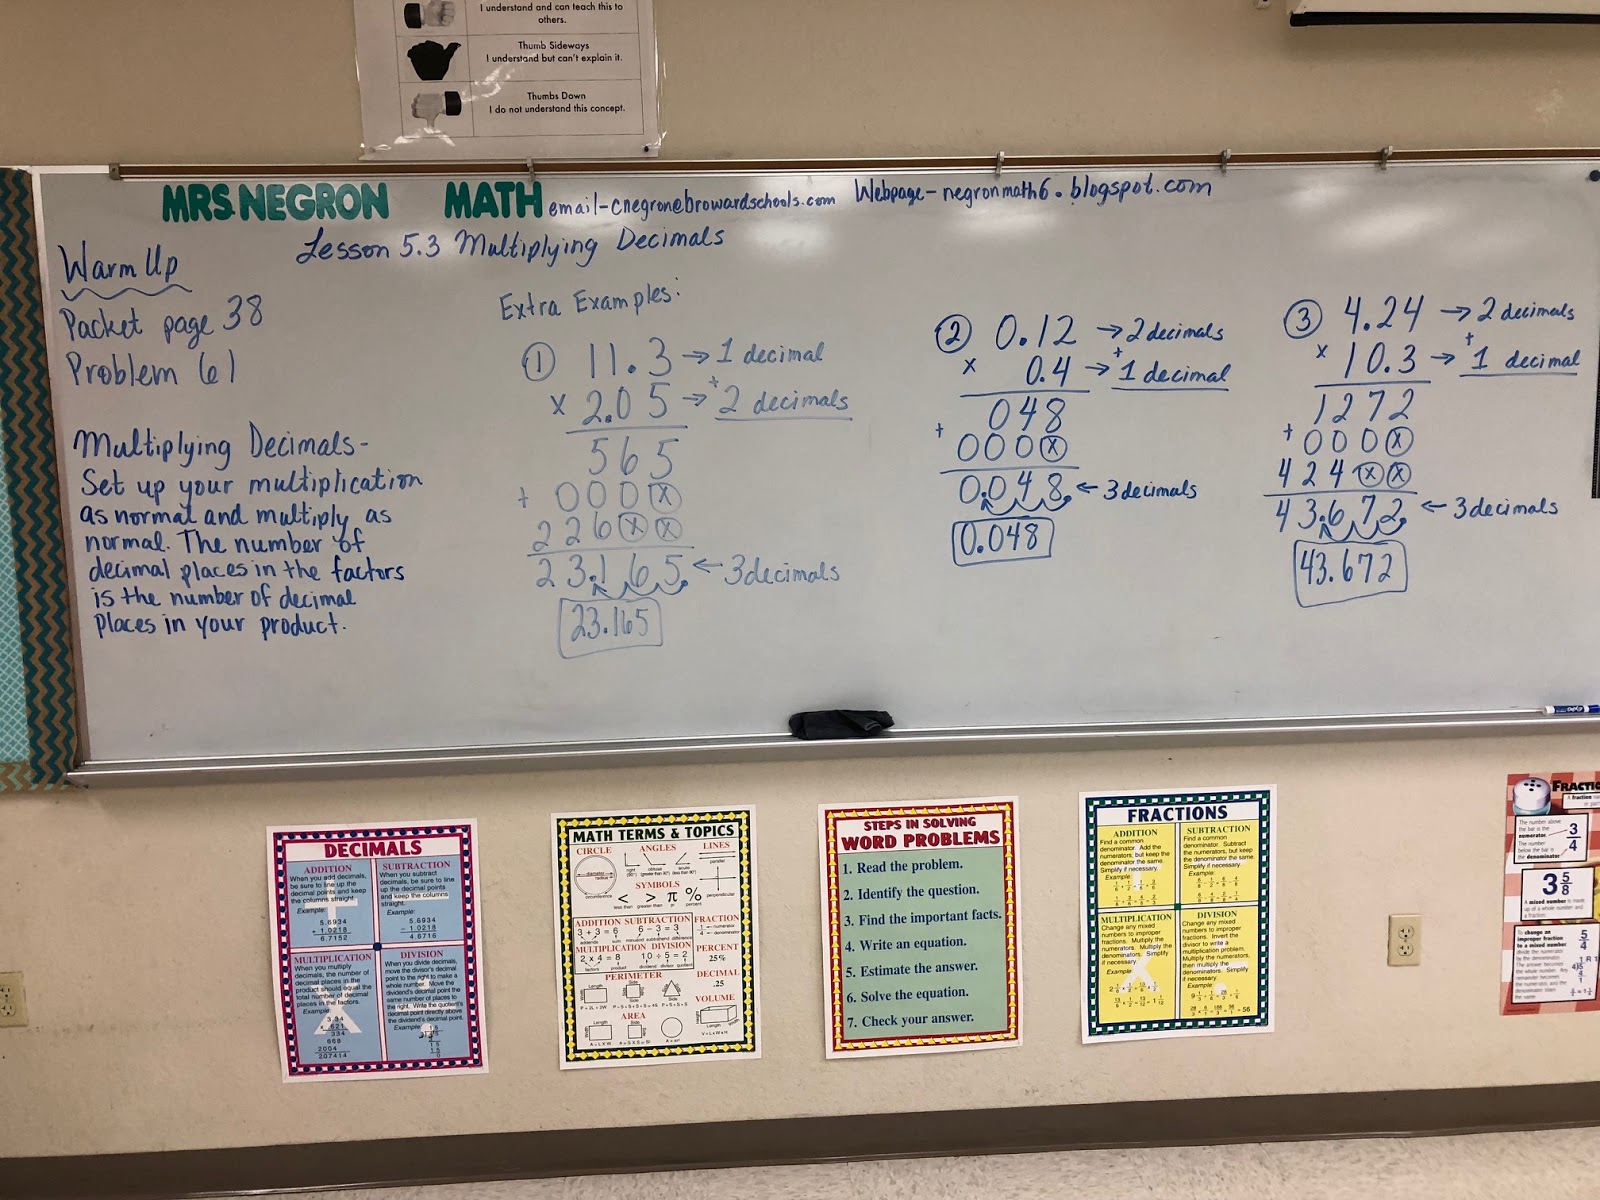 I understand and can teach this to
others.
Thumb Sideways
I understand but can't explain it.
Thumbs Down
I do not understand this concept.
MRS. NEGRON MATH email-cnegron@browardschools.com Webpage-negronmath6.blogspot.com
Lesson 5.3 Multiplying Decimals
Warm Up
Packet page 38
Problem 61
Multiplying Decimals-
Set up your multiplication
as normal and multiply as
normal. The number of
decimal places in the factors
is the number of decimal
places in your product.
Extra Examples:
① 11.3 → 1 decimal
x 2.05 → + 2 decimals
565
+ 000ⓧ
226ⓧⓧ
23.165. ← 3 decimals
23.165
② 0.12 → 2 decimals
x 0.4 → + 1 decimal
048
+ 000ⓧ
0.048. ← 3 decimals
0.048
③ 4.24 → 2 decimals
x 10.3 → + 1 decimal
1272
+ 000ⓧ
424ⓧⓧ
43.672. ← 3 decimals
43.672
DECIMALS
ADDITION
When you add decimals,
be sure to line up the
decimal points and keep
the columns straight.
Example:
5.6934
+ 1.0218
6.7152
SUBTRACTION
When you subtract
decimals, be sure to line
up the decimal points
and keep the columns
straight.
Example:
5.6934
- 1.0218
4.6716
MULTIPLICATION
When you multiply
decimals, the number of
decimal places in the
product should equal the
total number of decimal
places in the factors.
Example:
334
668
2004
207414
DIVISION
When you divide decimals,
move the divisor's decimal
point to the right to make a
whole number. Move the
dividend's decimal point the
same number of places to
the right. Write the quotient's
decimal point directly above
the dividend's decimal point.
Example:
MATH TERMS & TOPICS
CIRCLE ANGLES LINES
SYMBOLS
< > π %
ADDITION SUBTRACTION FRACTION
3 + 3 = 6 6 - 3 = 3
MULTIPLICATION DIVISION PERCENT
2 x 4 = 8 10 ÷ 5 = 2 25%
PERIMETER DECIMAL
.25
VOLUME
AREA
STEPS IN SOLVING
WORD PROBLEMS
1. Read the problem.
2. Identify the question.
3. Find the important facts.
4. Write an equation.
5. Estimate the answer.
6. Solve the equation.
7. Check your answer.
FRACTIONS
ADDITION
Find a common
denominator. Add the
numerators, but keep
the denominator the
same. Simplify if
necessary.
Example:
SUBTRACTION
Find a common
denominator. Subtract
the numerators, but keep
the denominator the same.
Simplify if necessary.
Example:
MULTIPLICATION
Change any mixed
numbers to improper
fractions. Multiply the
numerators. Multiply
the denominators.
Simplify if necessary.
Example:
DIVISION
Change any mixed
numbers to improper
fractions. Invert the
divisor to write a
multiplication problem.
Multiply the numerators,
then multiply the
denominators. Simplify
if necessary.
Example:
The number above
the bar is the
numerator.
The number
below the bar is
the denominator.
3/4
3 5/8
A mixed number is
made up of a whole number and
a fraction.
To change an
improper fraction
to a mixed number